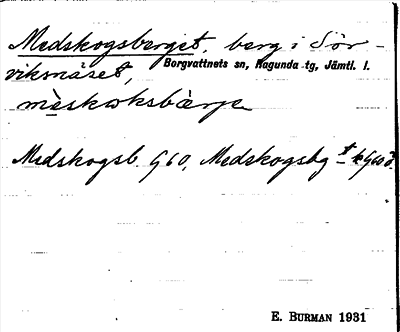 Medskogsberget, berg i Sör-
viksnäset, Borgvattnets sn, Ragunda tg, Jämtl. l.
mèskɷksbàrjə
Medskogsb. G 60, Medskogsbg
E. BURMAN 1931